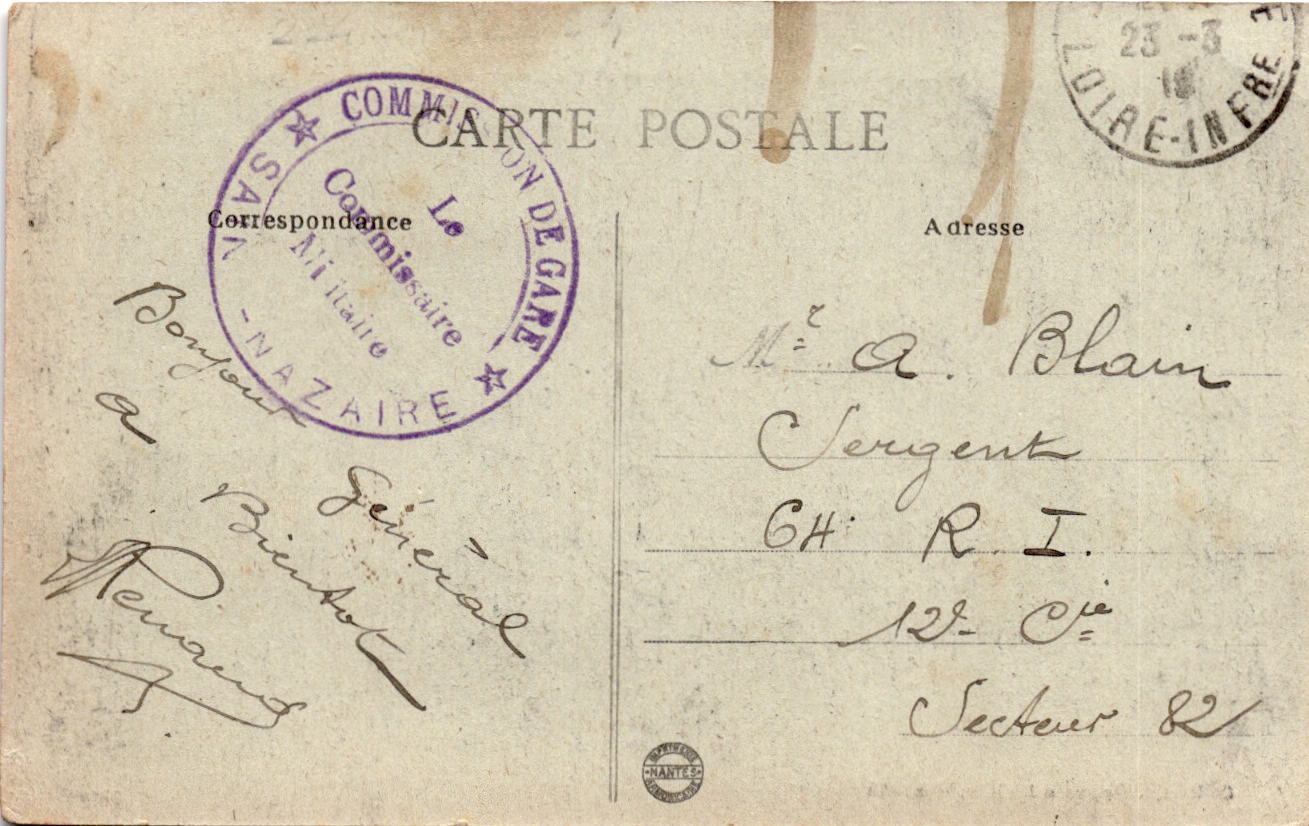 CARTE POSTALE
Correspondance
Adresse
COMMISSION DE GARE
SAINT-NAZAIRE
Le
Commissaire
Militaire
23 -3
LOIRE-INFRE
Bonjour
Général
a
Bientot
Renaud
Mr A. Blain
Sergent
64 R. I.
12e Cie
Secteur 82
IMPRIMERIE
NANTES
ARMORICAINE